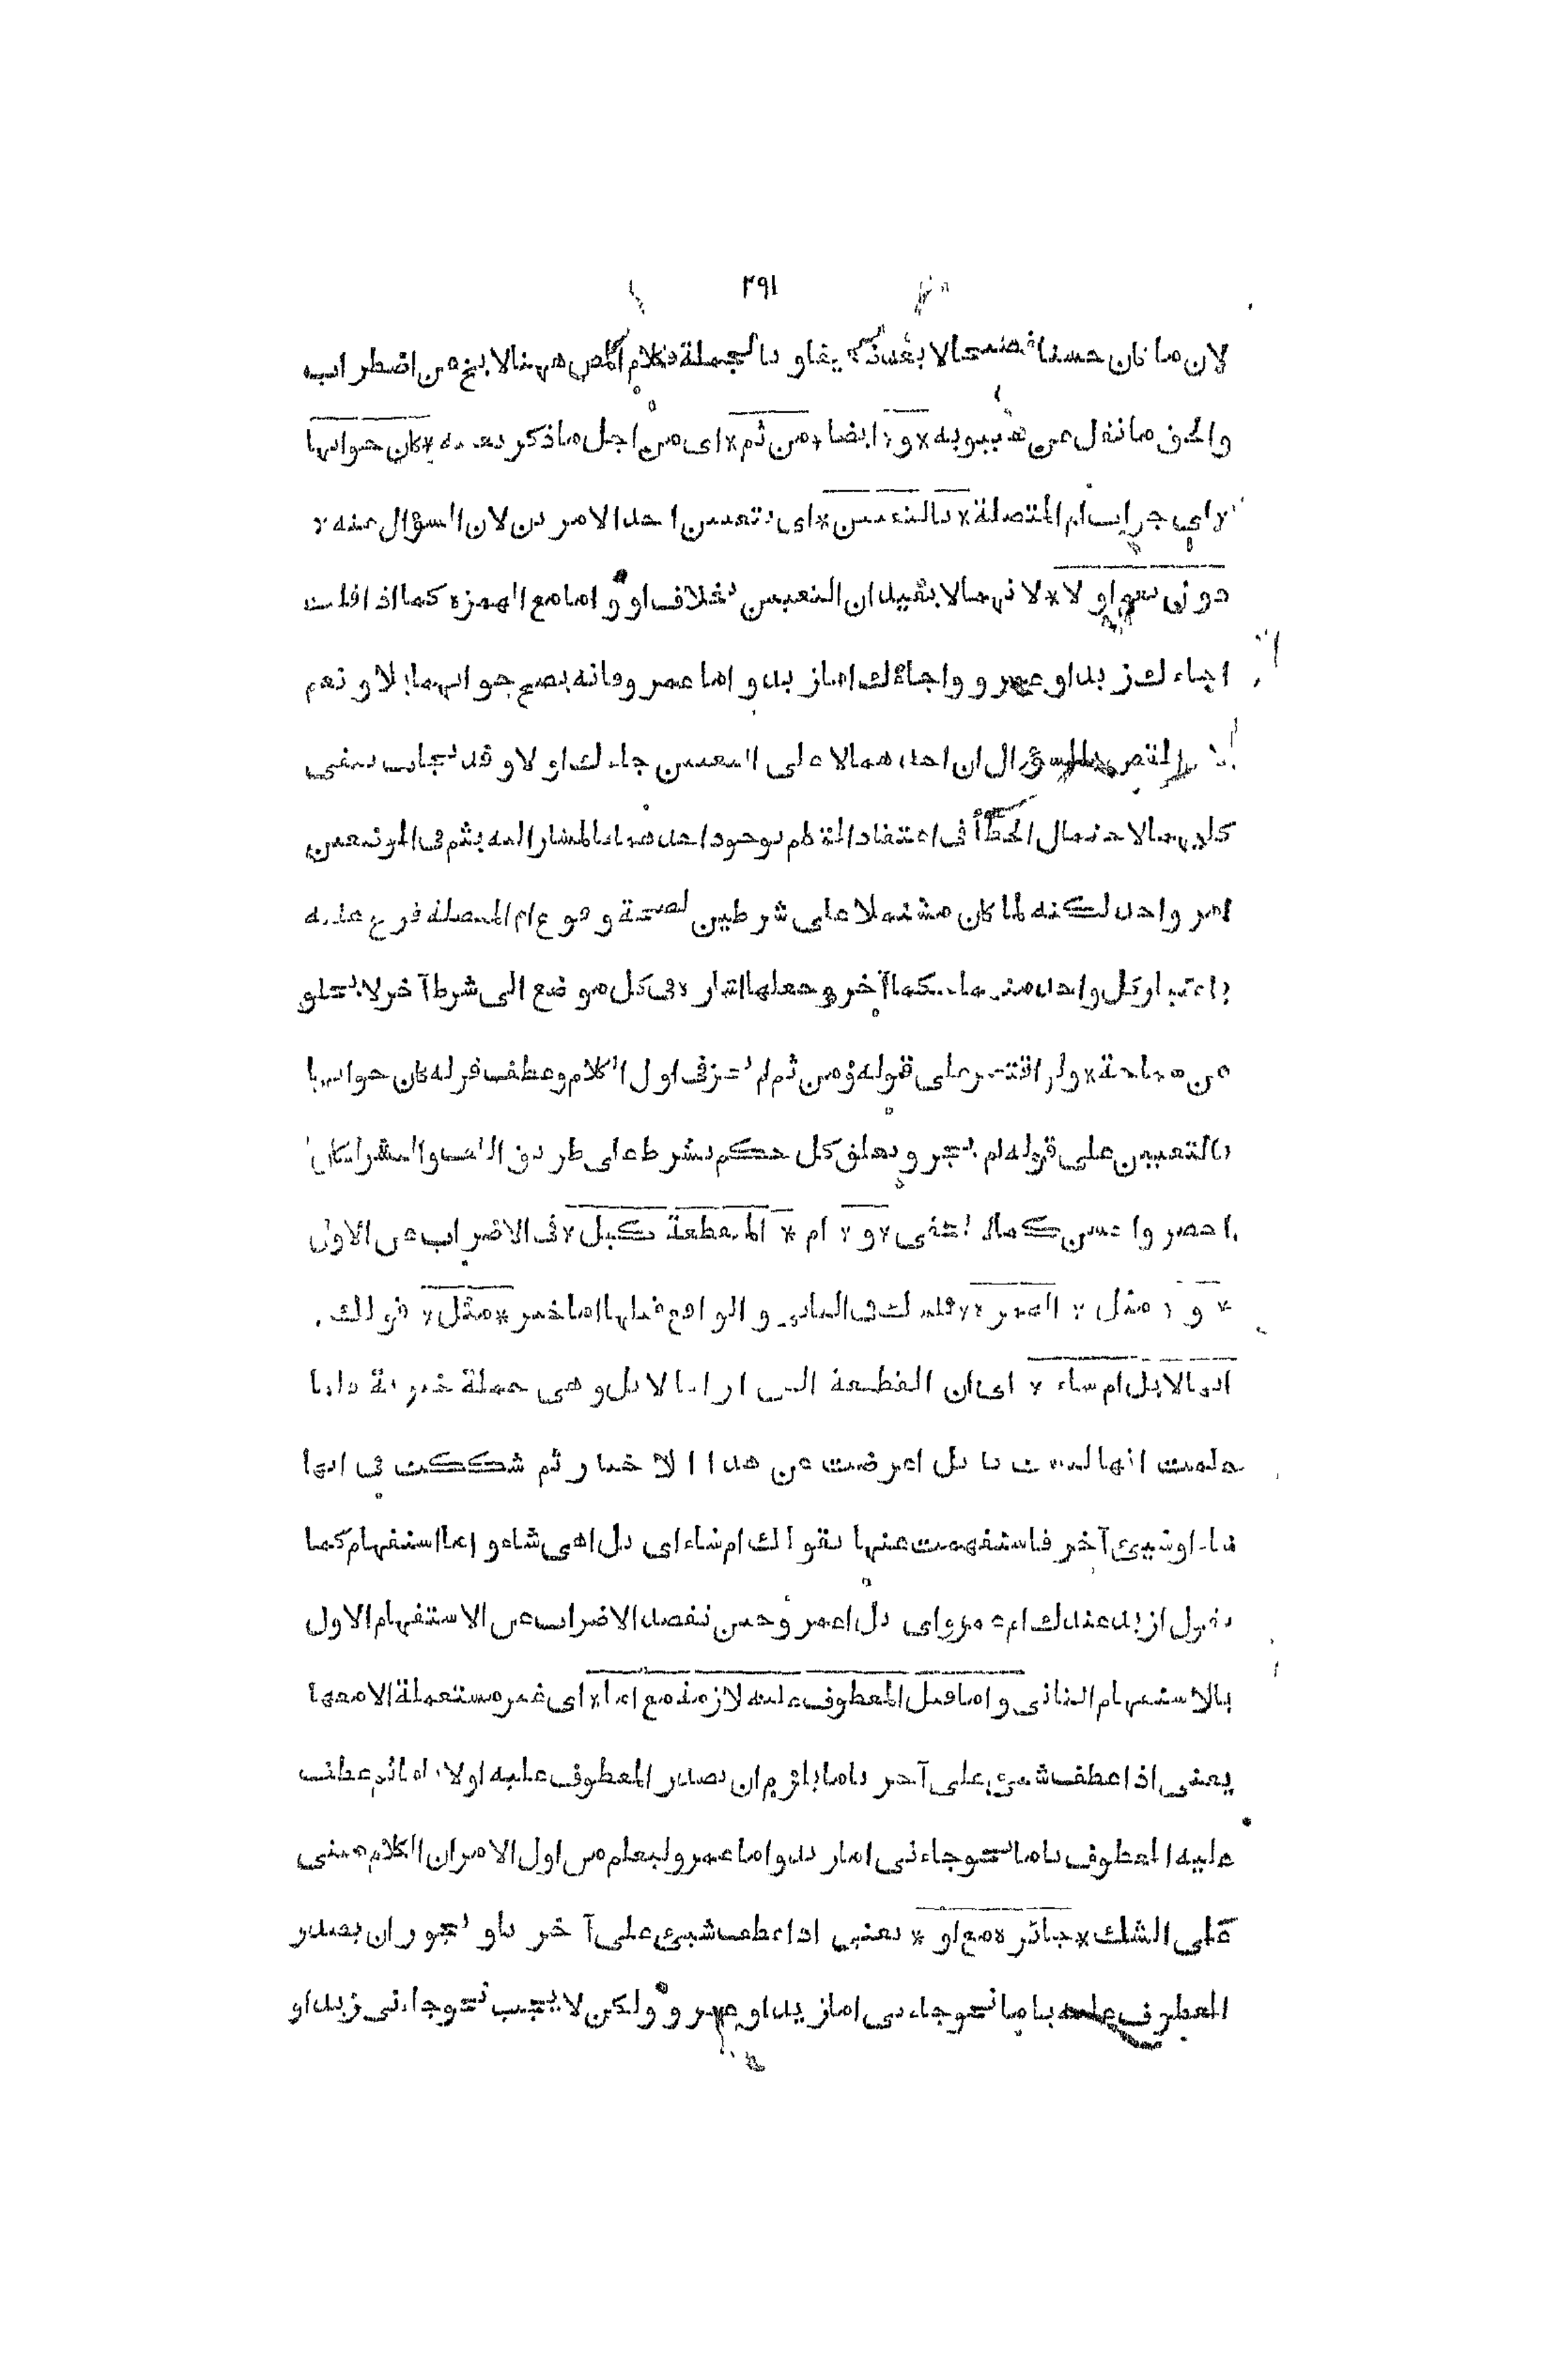 ٢٩١
لان ما كان حسنا فصيحا لا يقسد كيفاو بالجملة فكلام المص ههنا لا يخ عن اضطراب
والحق ما نقل عن سيبويه * و * ايضا * من ثم * اى من اجل ما ذكر بعينه * كان جوابها
* اى جواب ام المتصلة * بالتعيين * اى بتعيين احد الامرين لان السؤال عنه *
دون نعم او لا * لانهما لا يفيدان التعيين بخلاف او و اما مع الهمزة كما اذا قلت
اجاءك زيد او عمرو و اجاءك اما زيد و اما عمرو فانه يصح جوابهما بلا و نعم
المقصود بالسؤال ان احدهما لا على التعيين جاءك او لا و قد يجاب بنفى
كليهما لاحتمال الخطأ فى اعتقاد المتكلم بوجود احدهما فالمشار اليه بثم فى الموضعين
امر واحد لكنه لما كان مشتملا على شرطين لصحة وقوع ام المتصلة فرع عليه
باعتبار كل واحد منهما حكما آخر و جعلها اشارة فى كل موضع الى شرط آخر لا يخلو
عن مسامحة * ولو اقتصر على قوله ومن ثم لم يجز فى اول الكلام وعطف قوله كان جوابها
بالتعيين على قوله لم يجز و تعلق كل حكم بشرط على طريق اللف والنشر لكان
اخصر واحسن كما لا يخفى * و * ام * المنقطعة كبل * فى الاضراب عن الاول
* و * مثل * الهمزة * فى الثانى و الواقع قبلها اما خبر * مثل * قولك
انها لابل ام شاء * اى ان القطيعة التى اراها لابل و هى جملة خبرية فلما
علمت انها ليست بابل اعرضت عن هذا الاخبار ثم شككت فى انها
شاء او شيئ آخر فاستفهمت عنها بقولك ام شاء اى بل اهى شاء و اما استفهام كما
تقول ازيد عندك ام عمرو اى بل اعمرو حين تقصد الاضراب عن الاستفهام الاول
بالاستفهام الثانى و اما قبل المعطوف عليه لازمة مع اما * اى غير مستعملة الا معها
يعنى اذا عطف شيئ على آخر باما يلزم ان يصدر المعطوف عليه اولا باما ثم عطف
عليه المعطوف باما نحو جاءنى اما زيد و اما عمرو ليعلم من اول الامر ان الكلام مبنى
على الشك * جائزة مع او * يعنى اذا عطف شيئ على آخر باو يجوز ان يصدر
المعطوف عليه باما نحو جاءنى اما زيد او عمرو و لكن لا يجب نحو جاءنى زيد او